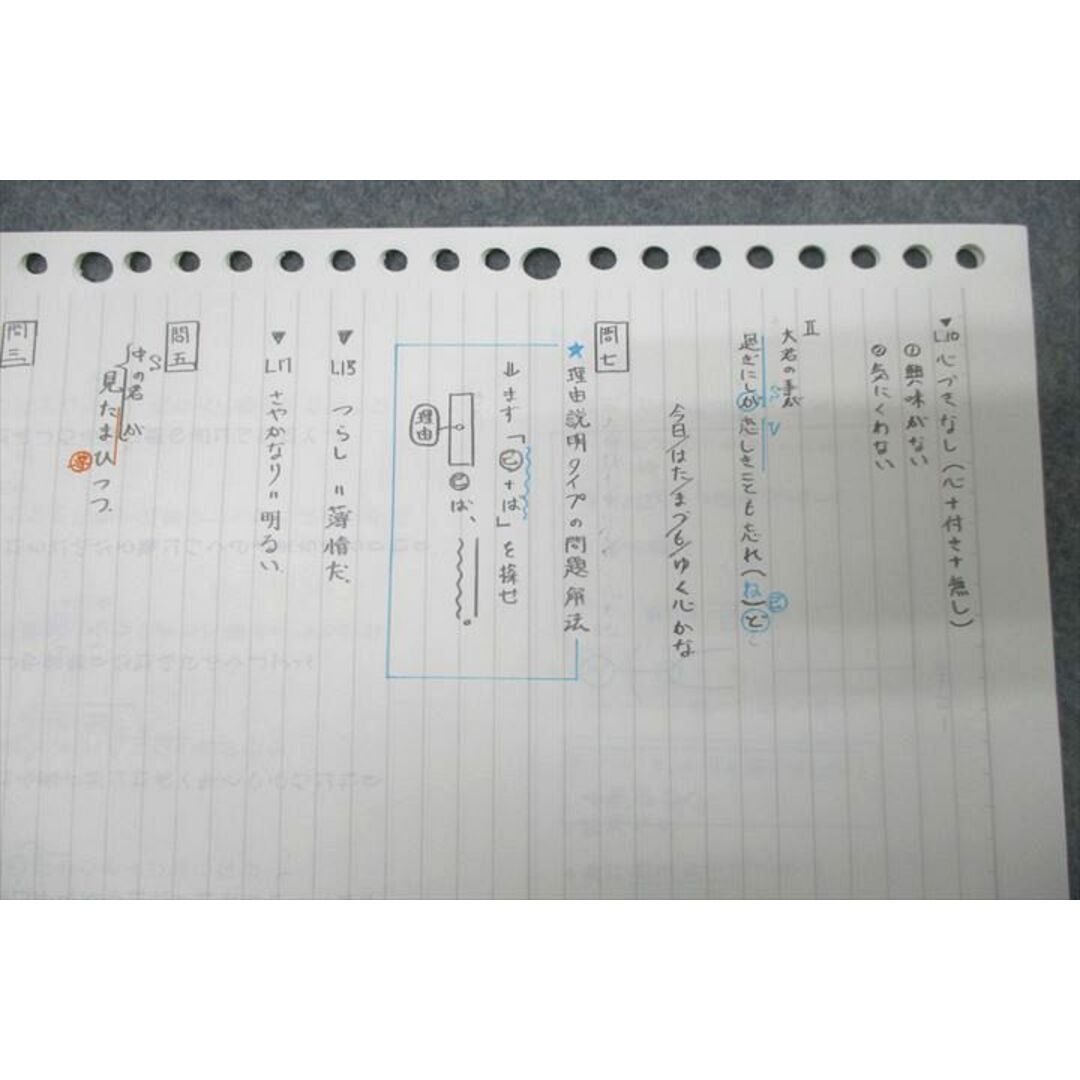 ▼L10 心づきなし(心+付き+無し)
①興味がない
②気にくわない
II
大君の事が
過ぎにしが恋しきことも忘れ(ね)ど
㋺
今日はたまづもゆく心かな
問七
★理由説明タイプの問題解法
⇓まず「㋺+ば」を探せ
理由
㋺ば、
。
▼L13 つらし=薄情だ.
▼L17 さやかなり=明るい.
問五
S
中の君が
見たまひつつ.
問三